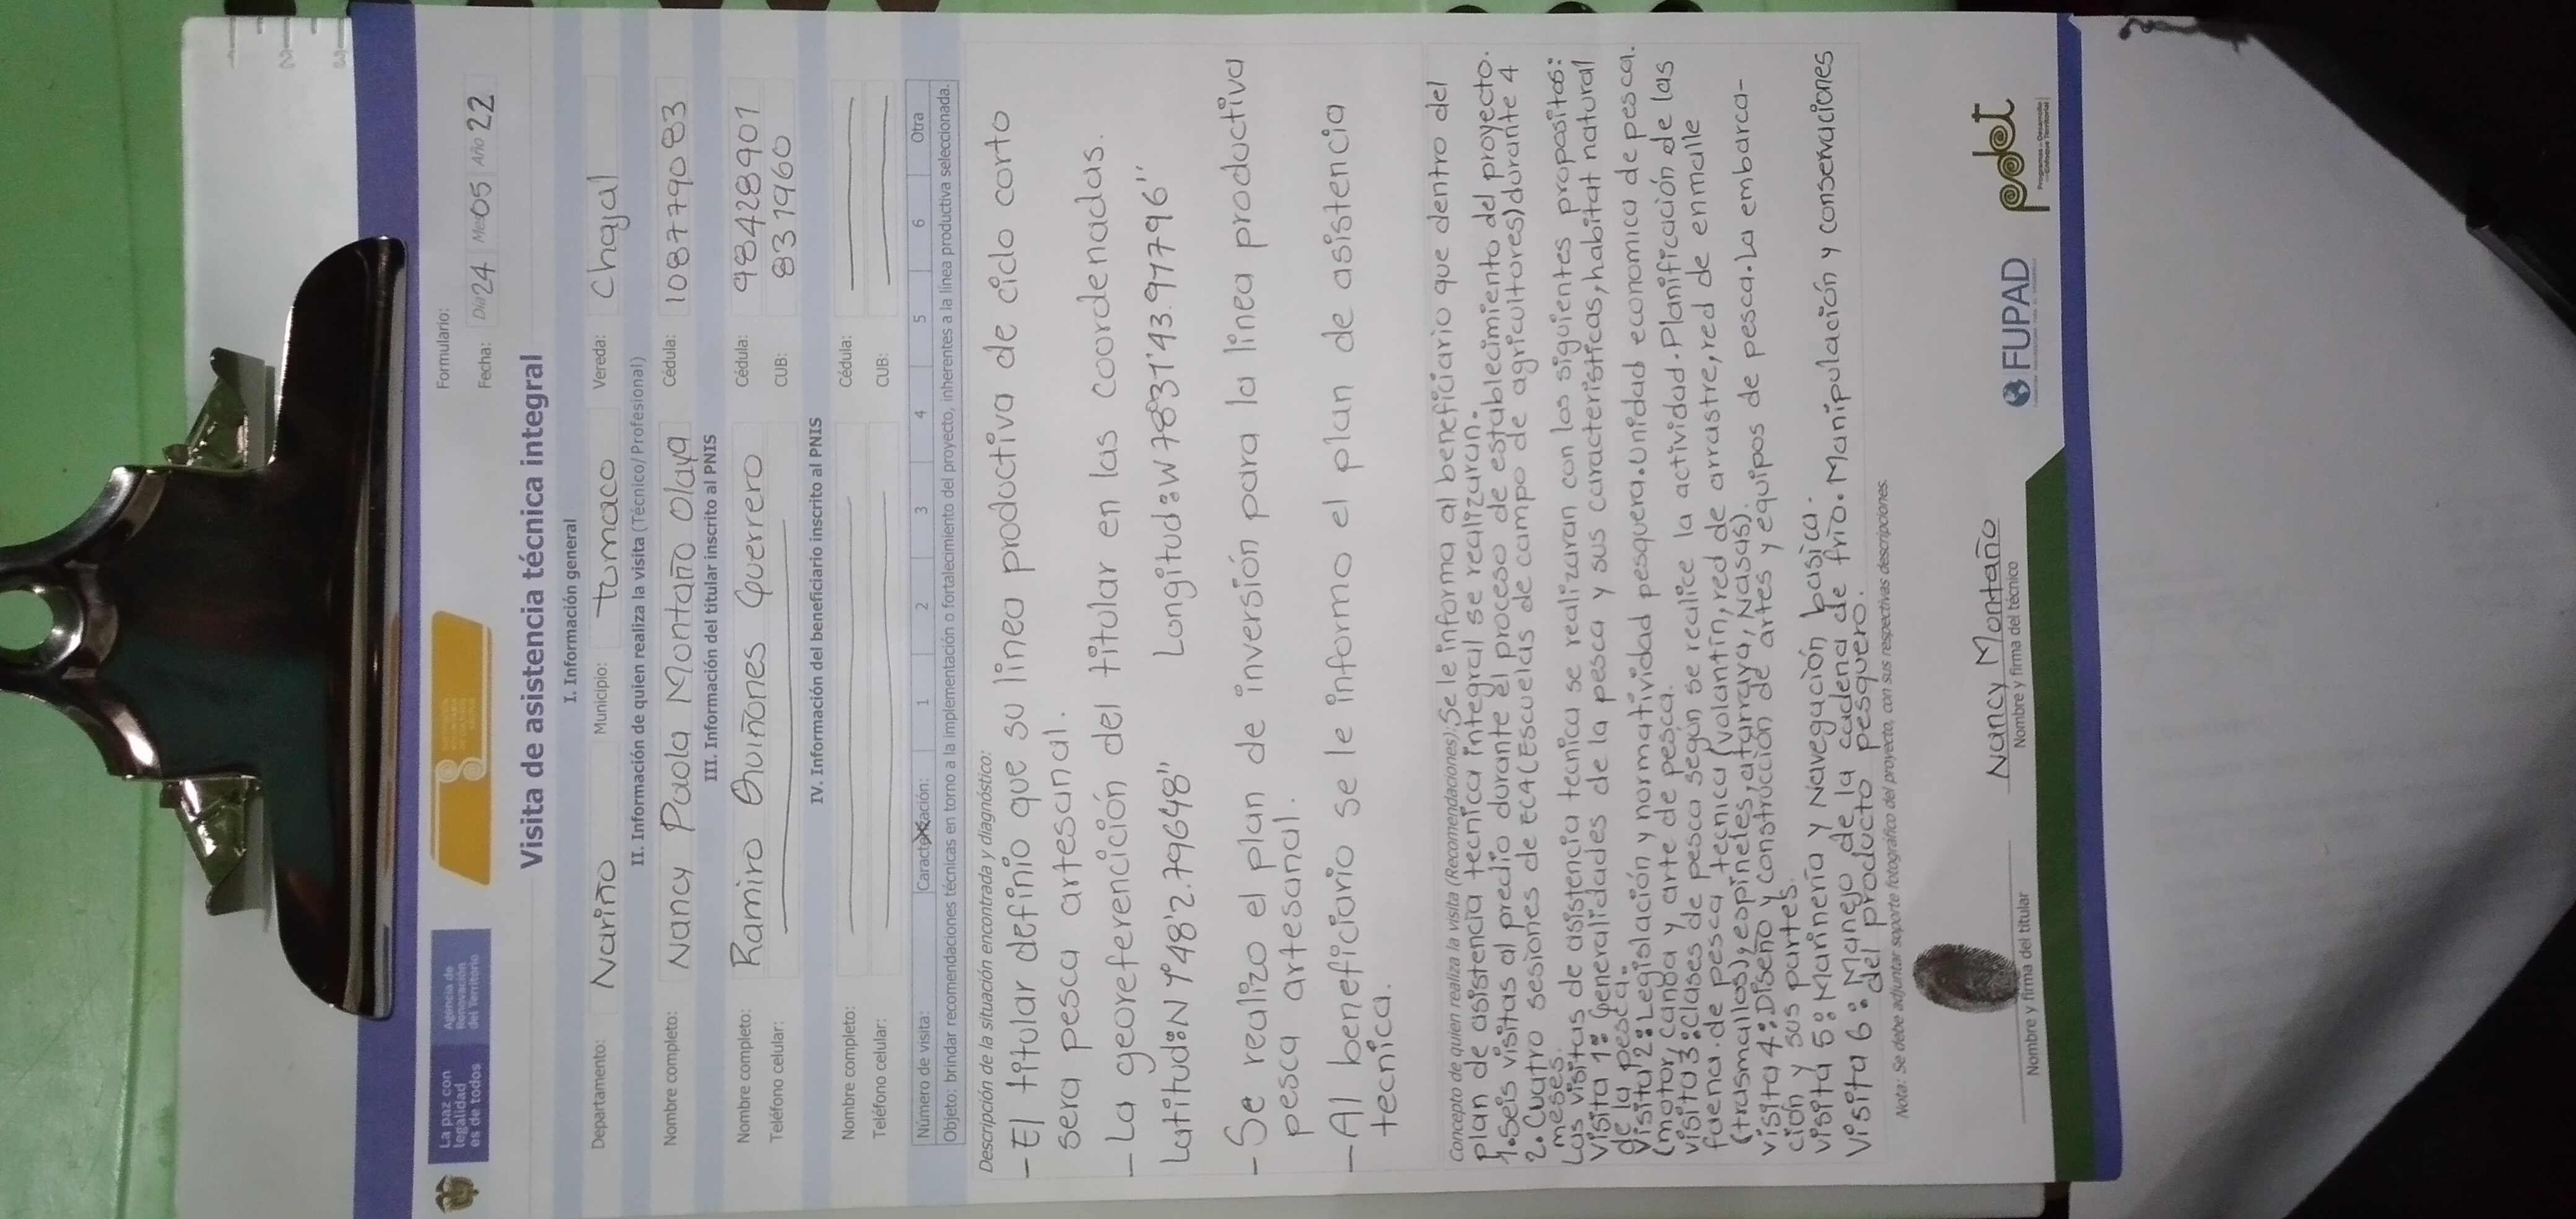 La paz con
legalidad
es de todos
Agencia de
Renovación
del Territorio
Formulario:
Fecha: Día 24 Mes 05 Año 22
Visita de asistencia técnica integral
I. Información general
Departamento: Nariño Municipio: Tumaco Vereda: Chajal
II. Información de quien realiza la visita (Técnico/Profesional)
Nombre completo: Nancy Paola Montaño Olaya Cédula: 108779083
III. Información del titular inscrito al PNIS
Nombre completo: Ramiro Quiñones Guerrero Cédula: 98428901
Teléfono celular: CUB: 831960
IV. Información del beneficiario inscrito al PNIS
Nombre completo: Cédula:
Teléfono celular: CUB:
Número de visita: Caracterización: 1 2 3 4 5 6 Otra
Objeto: brindar recomendaciones técnicas en torno a la implementación o fortalecimiento del proyecto, inherentes a la línea productiva seleccionada.
Descripción de la situación encontrada y diagnóstico:
- El titular definio que su linea productiva de ciclo corto
sera pesca artesanal.
- La georeferención del titular en las coordenadas.
Latitud: N 1°48'2.79648" Longitud: W 78°31'43.97796"
- Se realizo el plan de inversión para la linea productiva
pesca artesanal.
- Al beneficiario se le informo el plan de asistencia
tecnica.
Concepto de quien realiza la visita (Recomendaciones): Se le informa al beneficiario que dentro del
plan de asistencia tecnica integral se realizaran.
1. Seis visitas al predio durante el proceso de establecimiento del proyecto.
2. Cuatro sesiones de ECA (Escuelas de campo de agricultores) durante 4
meses.
Las visitas de asistencia tecnica se realizaran con los siguientes propositos:
Visita 1: Generalidades de la pesca y sus caracteristicas, habitat natural
de la pesca.
Visita 2: Legislación y normatividad pesquera. Unidad economica de pesca.
(motor, canoa y arte de pesca.
visita 3: Clases de pesca segun se realice la actividad. Planificación de las
faena de pesca tecnica (volantin, red de arrastre, red de enmalle
(trasmallos), espineles, atarraya, Nasas).
visita 4: Diseño y construcción de artes y equipos de pesca. La embarca-
ción y sus partes.
visita 5: Marinería y Navegación basica.
Visita 6: Manejo de la cadena de frio. Manipulación y conservaciones
del producto pesquero.
Nota: Se debe adjuntar soporte fotográfico del proyecto, con sus respectivas descripciones.
Nancy Montaño
Nombre y firma del titular Nombre y firma del técnico
FUPAD
pdet